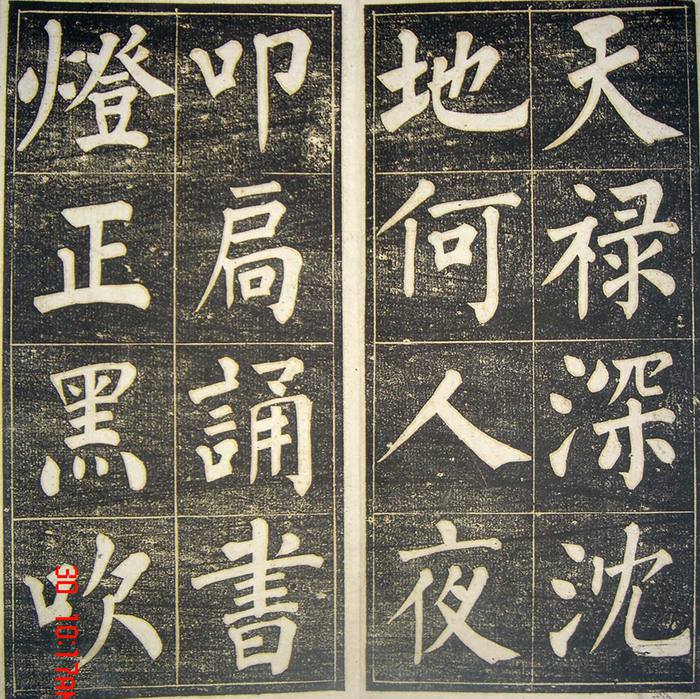 天禄深沈
地何人夜
叩扃誦書
燈正黑吹
30 10:17AM